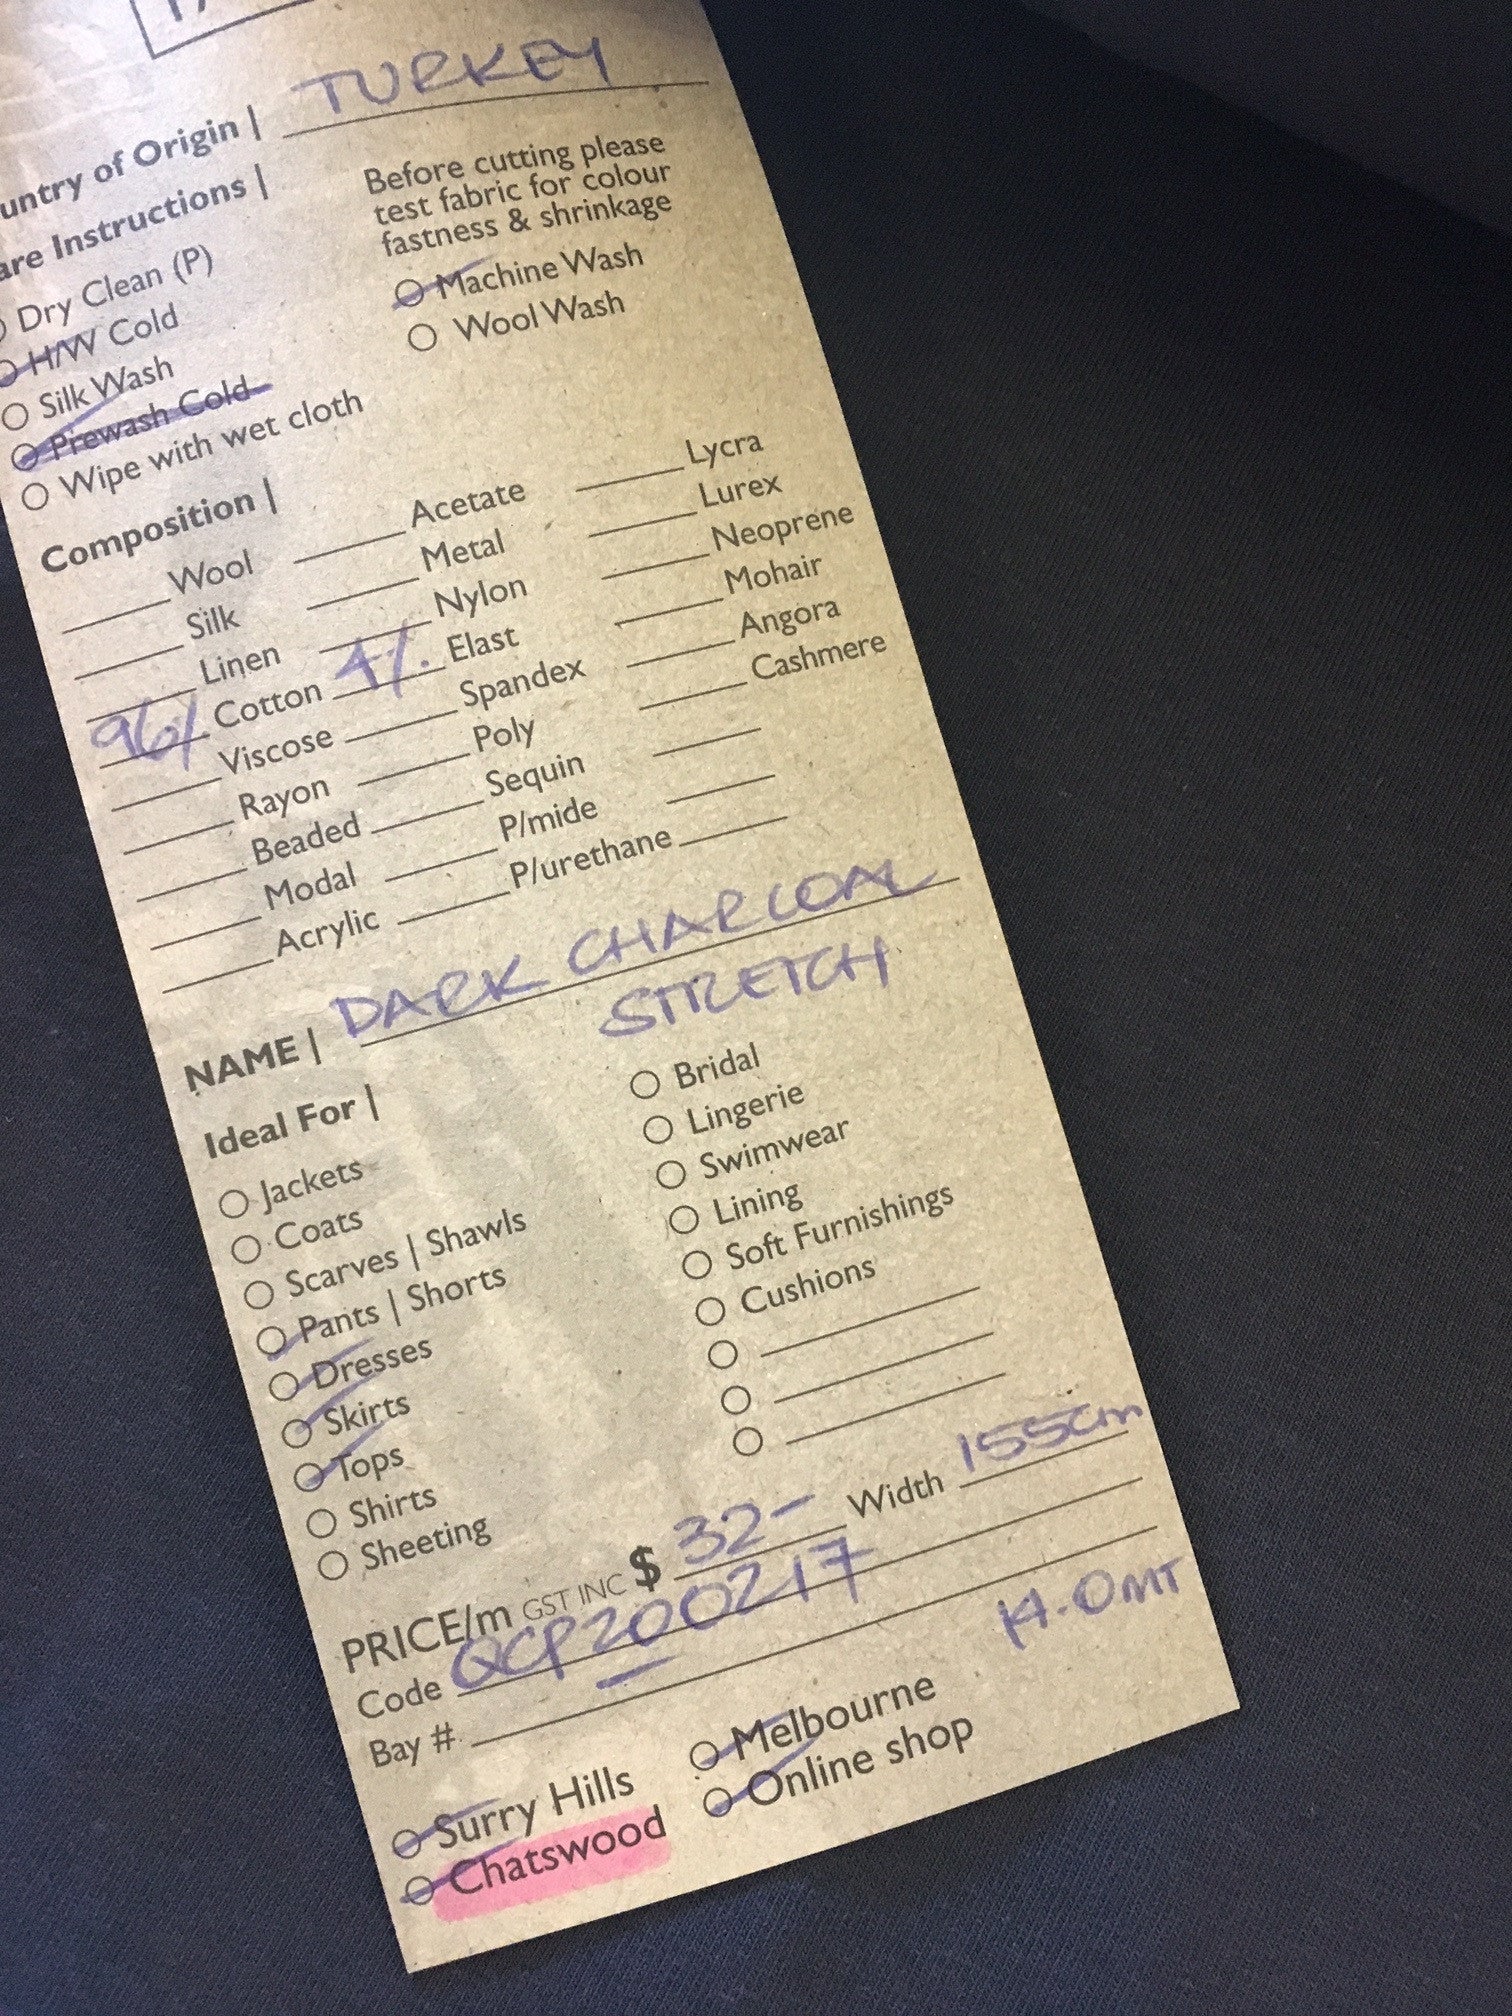 TURKEY
untry of Origin |
are Instructions |
Before cutting please
test fabric for colour
fastness & shrinkage
Dry Clean (P)
H/W Cold
Silk Wash
Prewash Cold
Wipe with wet cloth
Machine Wash
Wool Wash
Composition |
Wool
Silk
Linen
96% Cotton
Viscose
Rayon
Beaded
Modal
Acrylic
Acetate
Metal
Nylon
4% Elast
Spandex
Poly
Sequin
P/mide
P/urethane
Lycra
Lurex
Neoprene
Mohair
Angora
Cashmere
NAME | DARK CHARCOAL
STRETCH
Ideal For |
Jackets
Coats
Scarves | Shawls
Pants | Shorts
Dresses
Skirts
Tops
Shirts
Sheeting
Bridal
Lingerie
Swimwear
Lining
Soft Furnishings
Cushions
PRICE/m GST INC $ 32- Width 155cm
Code QCP200217
Bay #
14.0MT
Surry Hills
Chatswood
Melbourne
Online shop